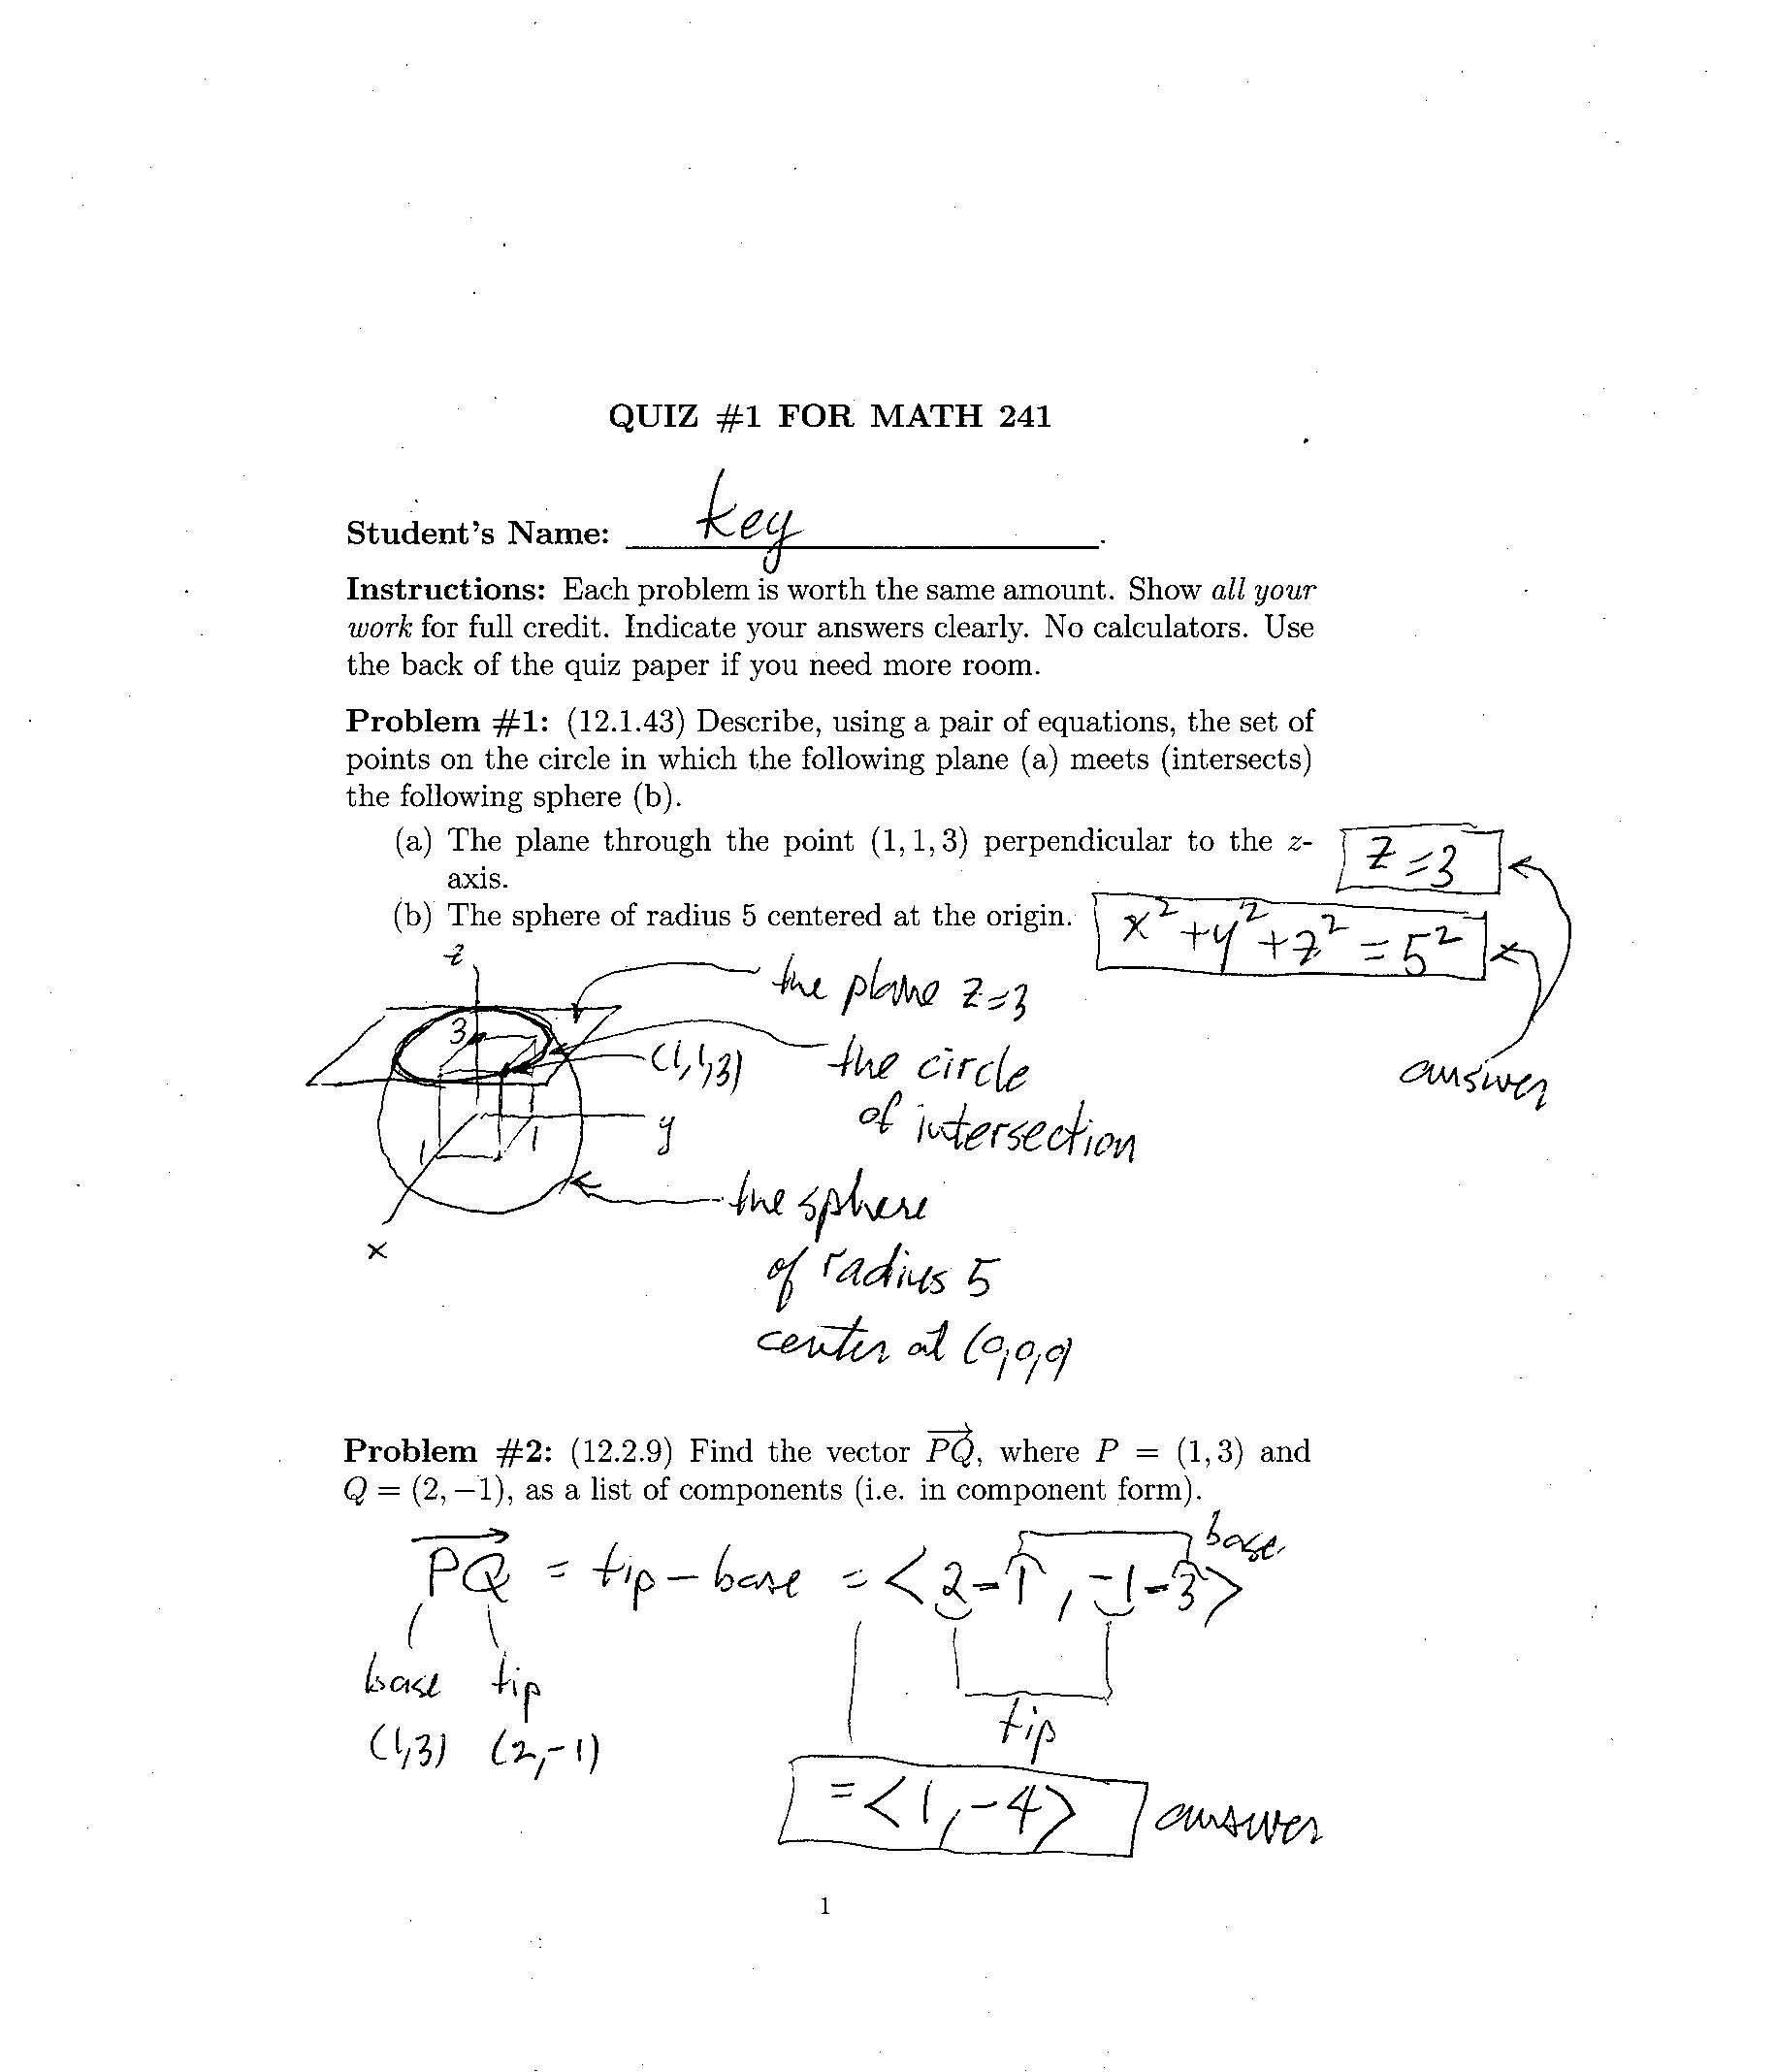 QUIZ #1 FOR MATH 241
Student's Name: key.
Instructions: Each problem is worth the same amount. Show all your
work for full credit. Indicate your answers clearly. No calculators. Use
the back of the quiz paper if you need more room.
Problem #1: (12.1.43) Describe, using a pair of equations, the set of
points on the circle in which the following plane (a) meets (intersects)
the following sphere (b).
(a) The plane through the point (1, 1, 3) perpendicular to the z-
axis.
z=3
(b) The sphere of radius 5 centered at the origin.
x²+y²+z²=5²
answer
z
the plane z=3
3
(1,1,3)
the circle
of intersection
y
1
1
x
the sphere
of radius 5
center at (0,0,0)
Problem #2: (12.2.9) Find the vector PQ, where P = (1, 3) and
Q = (2, −1), as a list of components (i.e. in component form).
base
PQ = tip - base = <2-1, -1-3>
base tip
(1,3) (2,-1)
tip
=<1,-4> answer
1